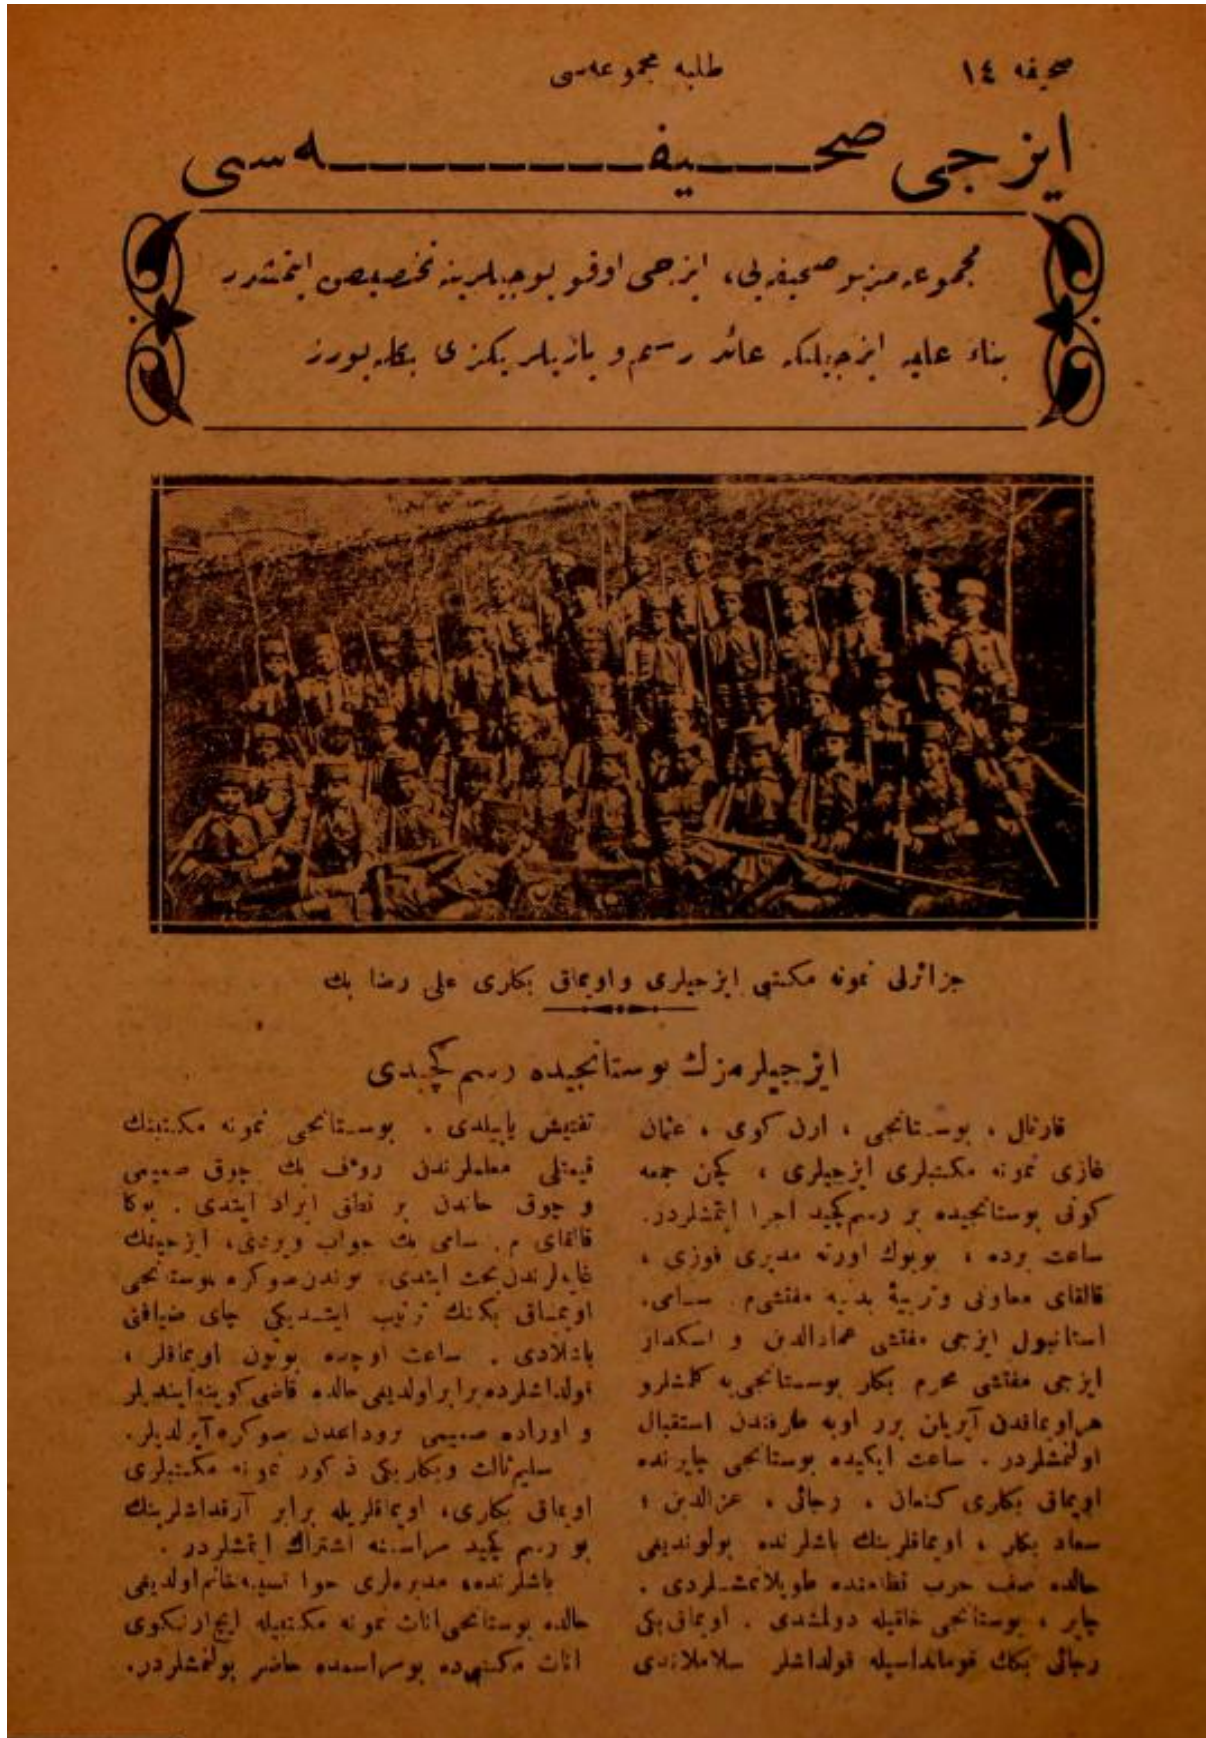 صحیفه ١٤
طلبه مجموعه‌سی
ایزجی صحیفه‌سی
مجموعه‌مز بو صحیفه‌یی، ایزجی اوقویوجیلرینه تخصیص ایتمشدر
بناءً علیه ایزجیلکه عائد رسم و یازیلریکزی بکله‌یورز
جزائرلی نمونه مکتبی ایزجیلری و اویماق بکلری علی رضا بك
ایزجیلرمزك بوستانجیده رسم کچیدی
قارتال ، بوستانجی ، ارن کوی ، عثمان
غازی نمونه مکتبلری ایزجیلری ، کچن جمعه
کونی بوستانجیده بر رسم‌کچید اجرا ایتمشلردر.
ساعت برده ، بویوك اورته مدیری فوزی ،
قالقای معاونی و تربیهٔ بدنیه مفتشی م. سامی،
استانبول ایزجی مفتشی عمادالدین و اسکدار
ایزجی مفتشی محرم بکلر بوستانجی‌یه کلمشلر و
هر اویماقدن آیریلان برر اوبه طرفندن استقبال
اولنمشلردر . ساعت ایکیده بوستانجی چایرنده
اویماق بکلری کنعان ، رجائی ، عزالدین ،
سعاد بکلر ، اویماقلرینك باشلرنده بولوندیغی
حالده صف حرب نظامنده طوپلانمشلردی .
چایر ، بوستانجی خلقیله دولمشدی . اویماق بکی
رجائی بکك قومانداسیله قولداشلر سلاملاندی
تفتیش یاپیلدی . بوستانجی نمونه مکتبنك
قیمتلی معلملرندن رؤف بك چوق صمیمی
و چوق جاندن بر نطق ایراد ایتدی . بوکا
قالقای م. سامی بك جواب ویردی، ایزجیلك
غایه‌لرندن بحث ایتدی. بوندن صوکره بوستانجی
اویماق بکنك ترتیب ایتدیکی چای ضیافتی
باشلادی . ساعت اوچده بوتون اویماقلر ،
قولداشلرده برابر اولدیغی حالده قاضی کوینه ایندیلر
و اوراده صمیمی بروداعدن صوکره آیرلدیلر.
سلیم ثالث و بکلربکی ذکور نمونه مکتبلری
اویماق بکلری، اویماقلریله برابر آرقداشلرینك
بو رسم کچید مراسمنه اشتراك ایتمشلردر .
باشلرنده، مدیره‌لری حوا نسیبه خانم اولدیغی
حالده بوستانجی اناث نمونه مکتبیله ایچ ارنکوی
اناث مکتبی‌ده بو مراسمده حاضر بولنمشلردر.